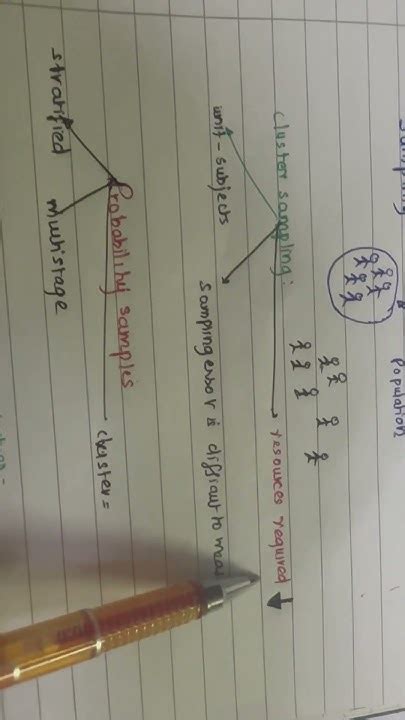 Population
cluster sampling: resources required
unit - subjects
sampling error is difficult to mea
Probability samples
cluster =
stratified
Multistage